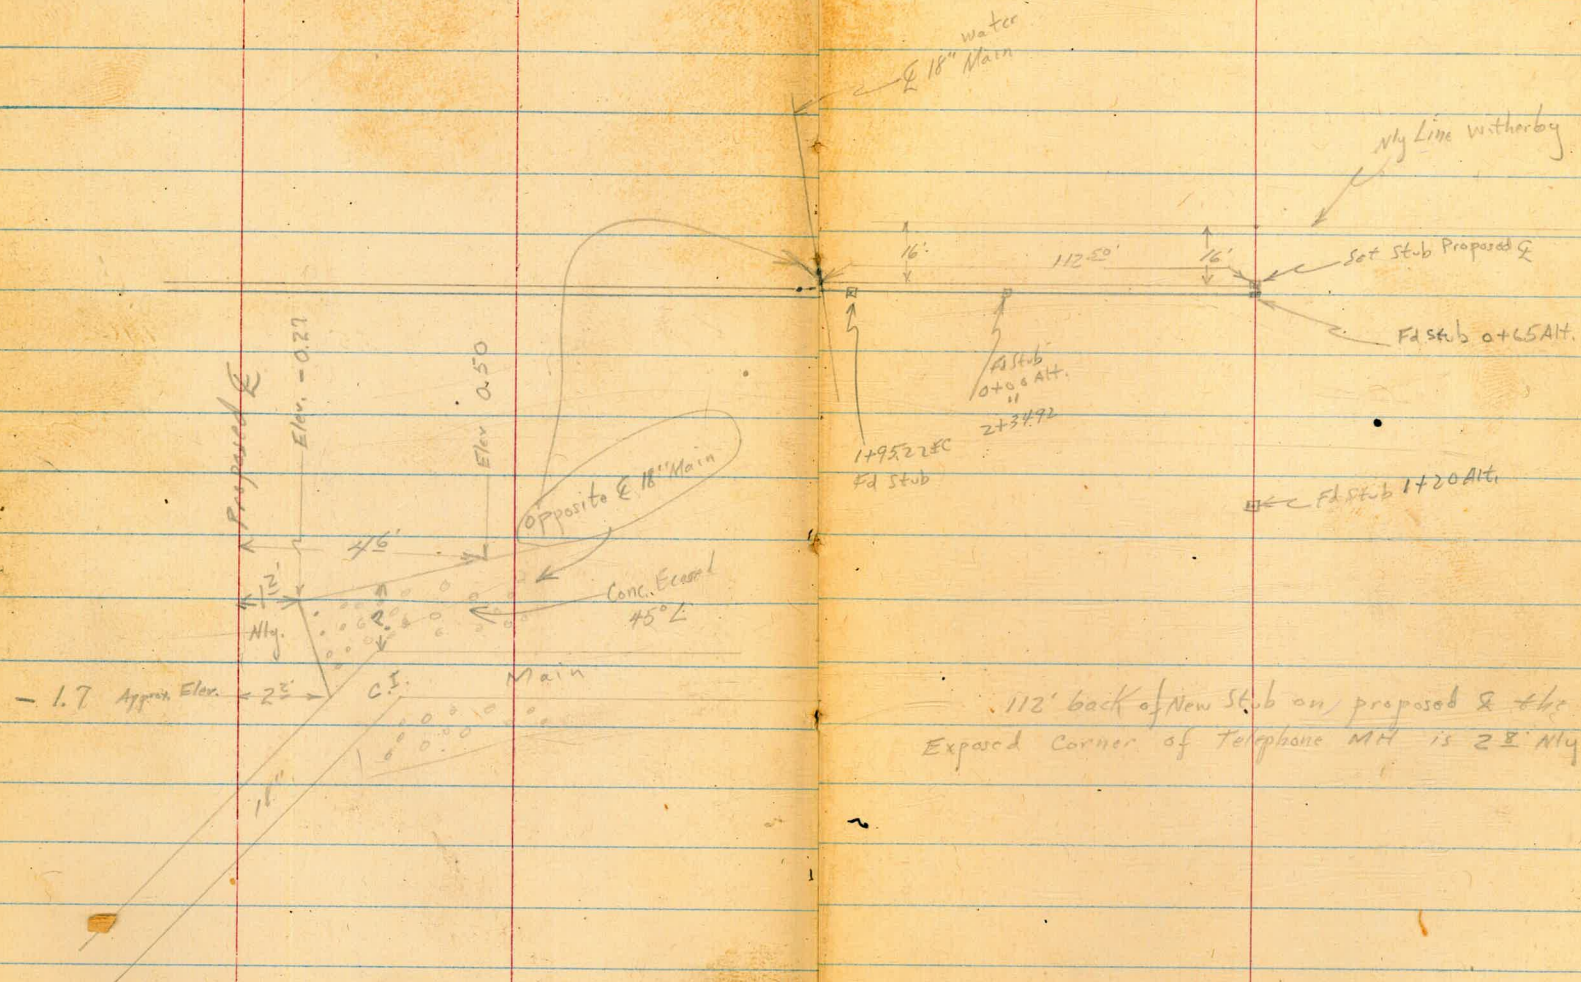 water
℄ 18" Main
Nly Line Witherby
16'
112.50'
16'
Set Stub Proposed ℄
Fd Stub 0+65 Alt.
Fd Stub
0+00 Alt.
"
2+34.92
1+95.22 EC
Fd Stub
Fd Stub 1+20 Alt.
Proposed ℄
Elev. -0.27
Elev 0.50
opposite ℄ 18" Main
4.6'
1.2'
Nly.
?
Conc. Ecased
45° L
- 1.7 Approx. Elev.
2.2'
C.I.
Main
18"
112' back of New Stub on proposed ℄ the
Exposed Corner of Telephone MH is 2.8' Nly